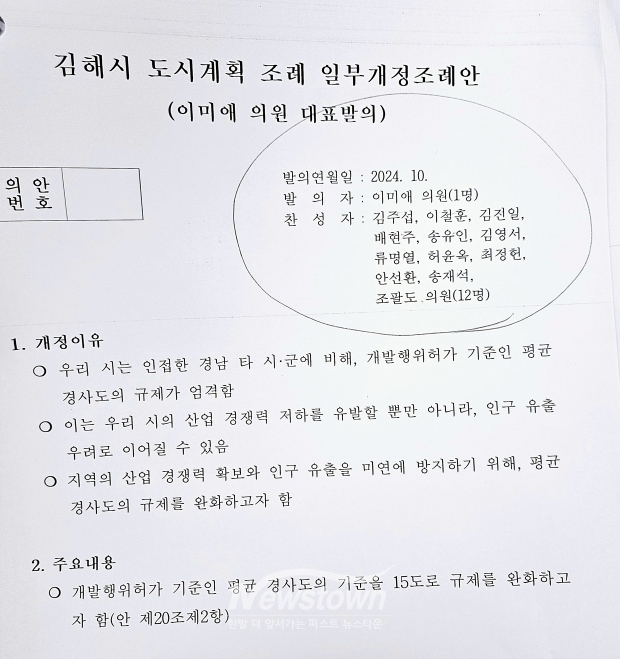 김해시 도시계획 조례 일부개정조례안
(이미애 의원 대표발의)
의 안
번 호
발의연월일 : 2024. 10.
발 의 자 : 이미애 의원(1명)
찬 성 자 : 김주섭, 이철훈, 김진일,
배현주, 송유인, 김영서,
류명열, 허윤옥, 최정헌,
안선환, 송재석,
조팔도 의원(12명)
1. 개정이유
❍ 우리 시는 인접한 경남 타 시·군에 비해, 개발행위허가 기준인 평균
경사도의 규제가 엄격함
❍ 이는 우리 시의 산업 경쟁력 저하를 유발할 뿐만 아니라, 인구 유출
우려로 이어질 수 있음
❍ 지역의 산업 경쟁력 확보와 인구 유출을 미연에 방지하기 위해, 평균
경사도의 규제를 완화하고자 함
2. 주요내용
❍ 개발행위허가 기준인 평균 경사도의 기준을 15도로 규제를 완화하고
자 함(안 제20조제2항)
Newstown
한발 더 앞서가는 퍼스트 뉴스타운